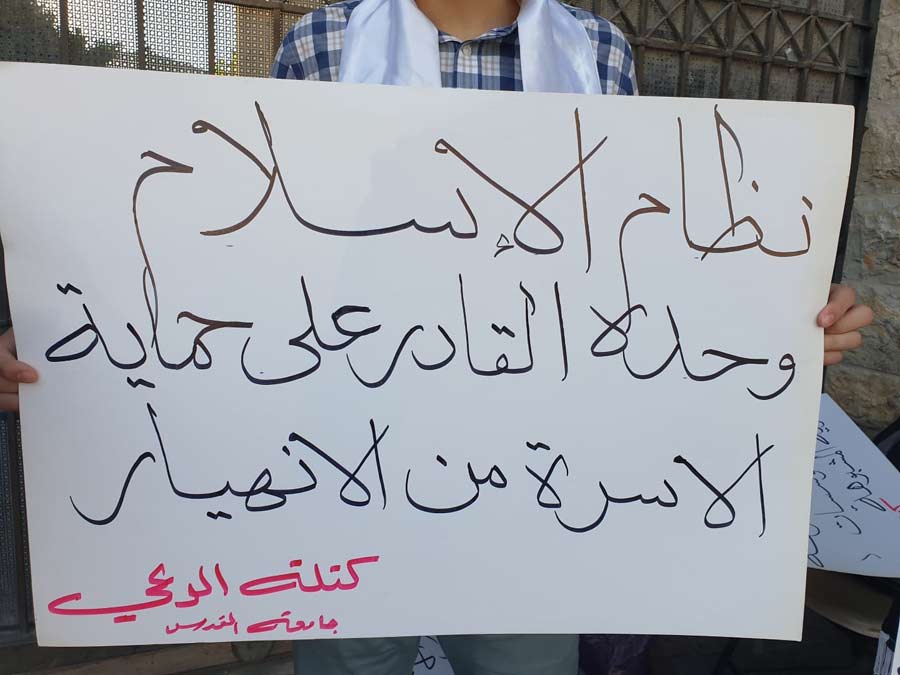 نظام الإسلام
وحده القادر على حماية
الاسرة من الانهيار
كتلة الوعي
جامعة القدس